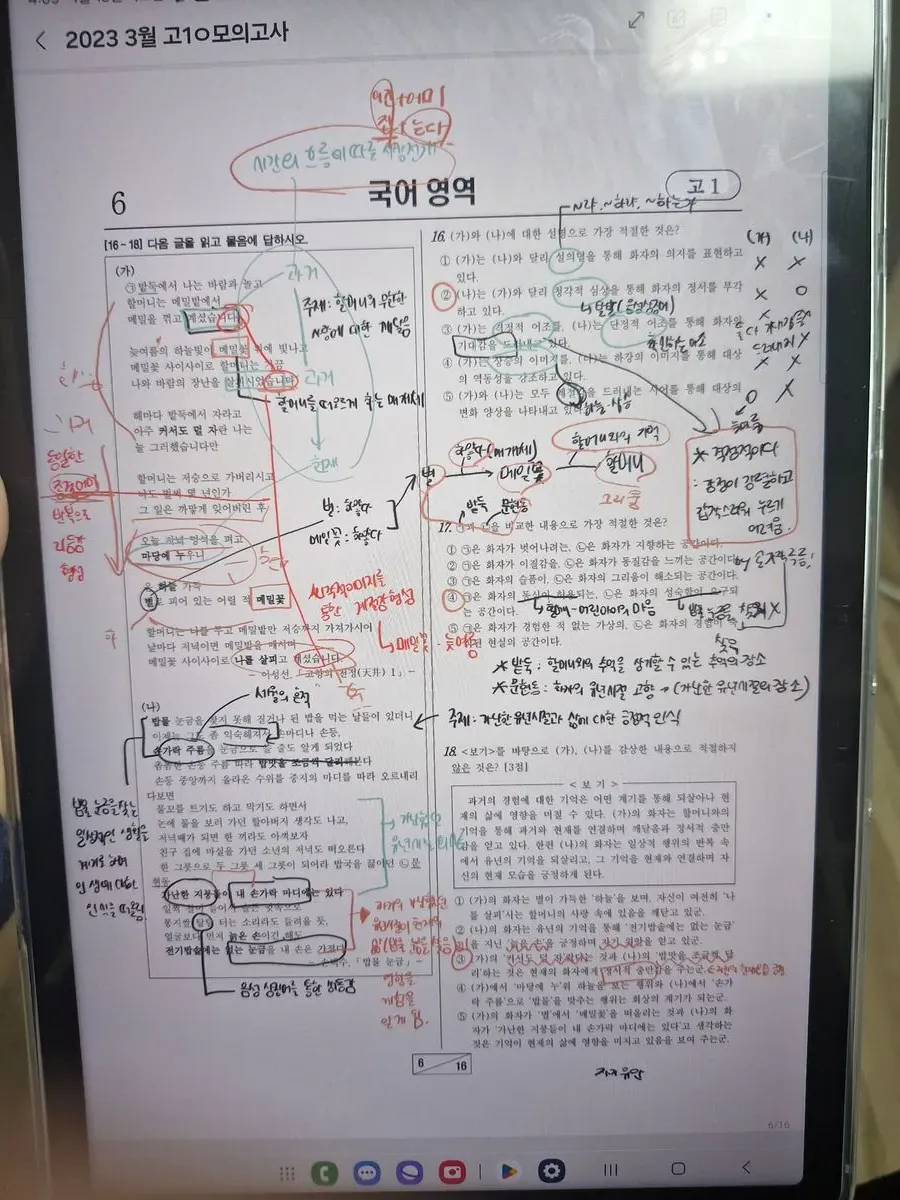 2023 3월 고1ㅇ모의고사
어간+어미
시간의 흐름에 따른 시상전개
6
국어 영역
고 1
[16~18] 다음 글을 읽고 물음에 답하시오.
(가)
㉠밭둑에서 나는 바람과 놀고
할머니는 메밀밭에서
메밀을 꺾고 계셨습니다.
늦여름의 하늘빛이 메밀꽃 위에 빛나고
메밀꽃 사이사이로 할머니는 가끔
나와 바람의 장난을 살피시었습니다
해마다 밭둑에서 자라고
아주 커서도 덜 자란 나는
늘 그러했습니다만
할머니는 저승으로 가버리시고
나도 벌써 몇 년인가
그 일은 까맣게 잊어버린 후
오늘 저녁 멍석을 펴고
마당에 누우니
온 하늘 가득
별로 피어 있는 어릴 적 메밀꽃
할머니는 나를 두고 메밀밭만 저승까지 가져가시어
날마다 저녁이면 메밀밭을 매시며
메밀꽃 사이사이로 나를 살피고 계셨습니다.
- 이성선, 「고향의 천정(天井) 1」 -
과거
과거
현재
주제: 할머니의 무한한
사랑에 대한 깨달음
할머니를 떠오르게 하는 매개체
동일한
종결어미
반복으로
리듬감
형성
별: 하얗다
메밀꽃: 하얗다
시각적이미지를
통한 계절감 형성
메밀꽃 - 늦여름
(나)
밥물 눈금을 찾지 못해 질거나 된 밥을 먹는 날들이 있더니
이제는 그도 좀 익숙해져서 손마디나 손등,
손가락 주름을 눈금으로 쓸 줄도 알게 되었다
촘촘한 손등 주름 따라 밥맛을 조금씩 달리해본다
손등 중앙까지 올라온 수위를 중지의 마디를 따라 오르내리
다보면
물꼬를 트기도 하고 막기도 하면서
논에 물을 보러 가던 할아버지 생각도 나고,
저녁때가 되면 한 끼라도 아껴보자
친구 집에 마실을 가던 소년의 저녁도 떠오른다
한 그릇으로 두 그릇 세 그릇이 되어라 밥국을 끓이던 ㉡문
현동
가난한 지붕들이 내 손가락 마디에는 있다
얼굴보다 먼저 늙은 손이긴 해도
전기밥솥에는 없는 눈금을 내 손은 가졌다
- 손택수, 「밥물 눈금」 -
세월의 흔적
밥물 눈금을 찾는
일상적인 생활을
계기로 하여
음성 상징어를 통한 생동감
16. (가)와 (나)에 대한 설명으로 가장 적절한 것은?
① (가)는 (나)와 달리 설의법을 통해 화자의 의지를 표현하고
있다.
② (나)는 (가)와 달리 청각적 심상을 통해 화자의 정서를 부각
하고 있다.
③ (가)는 격정적 어조를, (나)는 단정적 어조를 통해 화자의
기대감을 드러내고 있다.
④ (가)는 상승의 이미지를, (나)는 하강의 이미지를 통해 대상
의 역동성을 강조하고 있다.
⑤ (가)와 (나)는 모두 계절감을 드러내는 시어를 통해 대상의
변화 양상을 나타내고 있다.
(가) (나)
별
하얗다(매개체)
메밀꽃
할머니와의 기억
할머니
그리움
밭둑 문현동
* 격정적이다
: 감정이 강렬하고
갑작스러워 누르기
어려움.
17. ㉠과 ㉡을 비교한 내용으로 가장 적절한 것은?
① ㉠은 화자가 벗어나려는, ㉡은 화자가 지향하는 공간이다.
② ㉠은 화자가 이질감을, ㉡은 화자가 동질감을 느끼는 공간이다.
③ ㉠은 화자의 슬픔이, ㉡은 화자의 그리움이 해소되는 공간이다.
④ ㉠은 화자의 동심이 허용되는, ㉡은 화자의 성숙함이 요구되
는 공간이다.
⑤ ㉠은 화자가 경험한 적 없는 가상의, ㉡은 화자의 경험이 축
적된 현실의 공간이다.
* 밭둑 : 할머니와의 추억을 상기할 수 있는 추억의 장소
* 문현동 : 화자의 유년시절 고향 → (가난한 유년시절의 장소)
주제: 가난한 유년시절과 삶에 대한 긍정적 인식
18. <보기>를 바탕으로 (가), (나)를 감상한 내용으로 적절하지
않은 것은? [3점]
< 보 기 >
과거의 경험에 대한 기억은 어떤 계기를 통해 되살아나 현
재의 삶에 영향을 미칠 수 있다. (가)의 화자는 할머니와의
기억을 통해 과거와 현재를 연결하며 깨달음과 정서적 충만
감을 얻고 있다. 한편 (나)의 화자는 일상적 행위의 반복 속
에서 유년의 기억을 되살리고, 그 기억을 현재와 연결하며 자
신의 현재 모습을 긍정하게 된다.
① (가)의 화자는 별이 가득한 '하늘'을 보며, 자신이 여전히 '나
를 살피'시는 할머니의 사랑 속에 있음을 깨닫고 있군.
② (나)의 화자는 유년의 기억을 통해 '전기밥솥에는 없는 눈금'
을 지닌 '늙은 손'을 긍정하며 자기 위안을 얻고 있군.
③ (가)의 '커서도 덜 자랐'다는 것과 (나)의 '밥맛을 조금씩 달
리'하는 것은 현재의 화자에게 정서적 충만감을 주는군.
④ (가)에서 '마당에 누'워 하늘을 보는 행위와 (나)에서 '손가
락 주름'으로 '밥물'을 맞추는 행위는 회상의 계기가 되는군.
⑤ (가)의 화자가 '별'에서 '메밀꽃'을 떠올리는 것과 (나)의 화
자가 '가난한 지붕들이 내 손가락 마디에는 있다'고 생각하는
것은 기억이 현재의 삶에 영향을 미치고 있음을 보여 주는군.
자기 위안
6
16
6/16